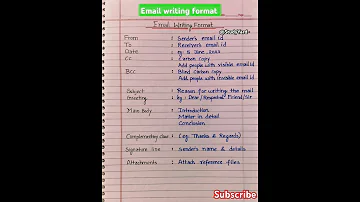 Email writing format
Email Writing Format
From : Sender's email id
To : Receiver's email id
Date : eg. 5 June
Cc : Carbon copy
Add people with visible email id
Bcc : Blind carbon copy
Add people with invisible email id
Subject : Reason for writing the mail
Greeting : eg. Dear/Respected Friend/Sir
Main Body : Introduction
Matter in detail
Conclusion
Complementary Close : (eg. Thanks & Regards)
Signature line : Sender's name & details
Attachments : Attach reference files
Subscribe